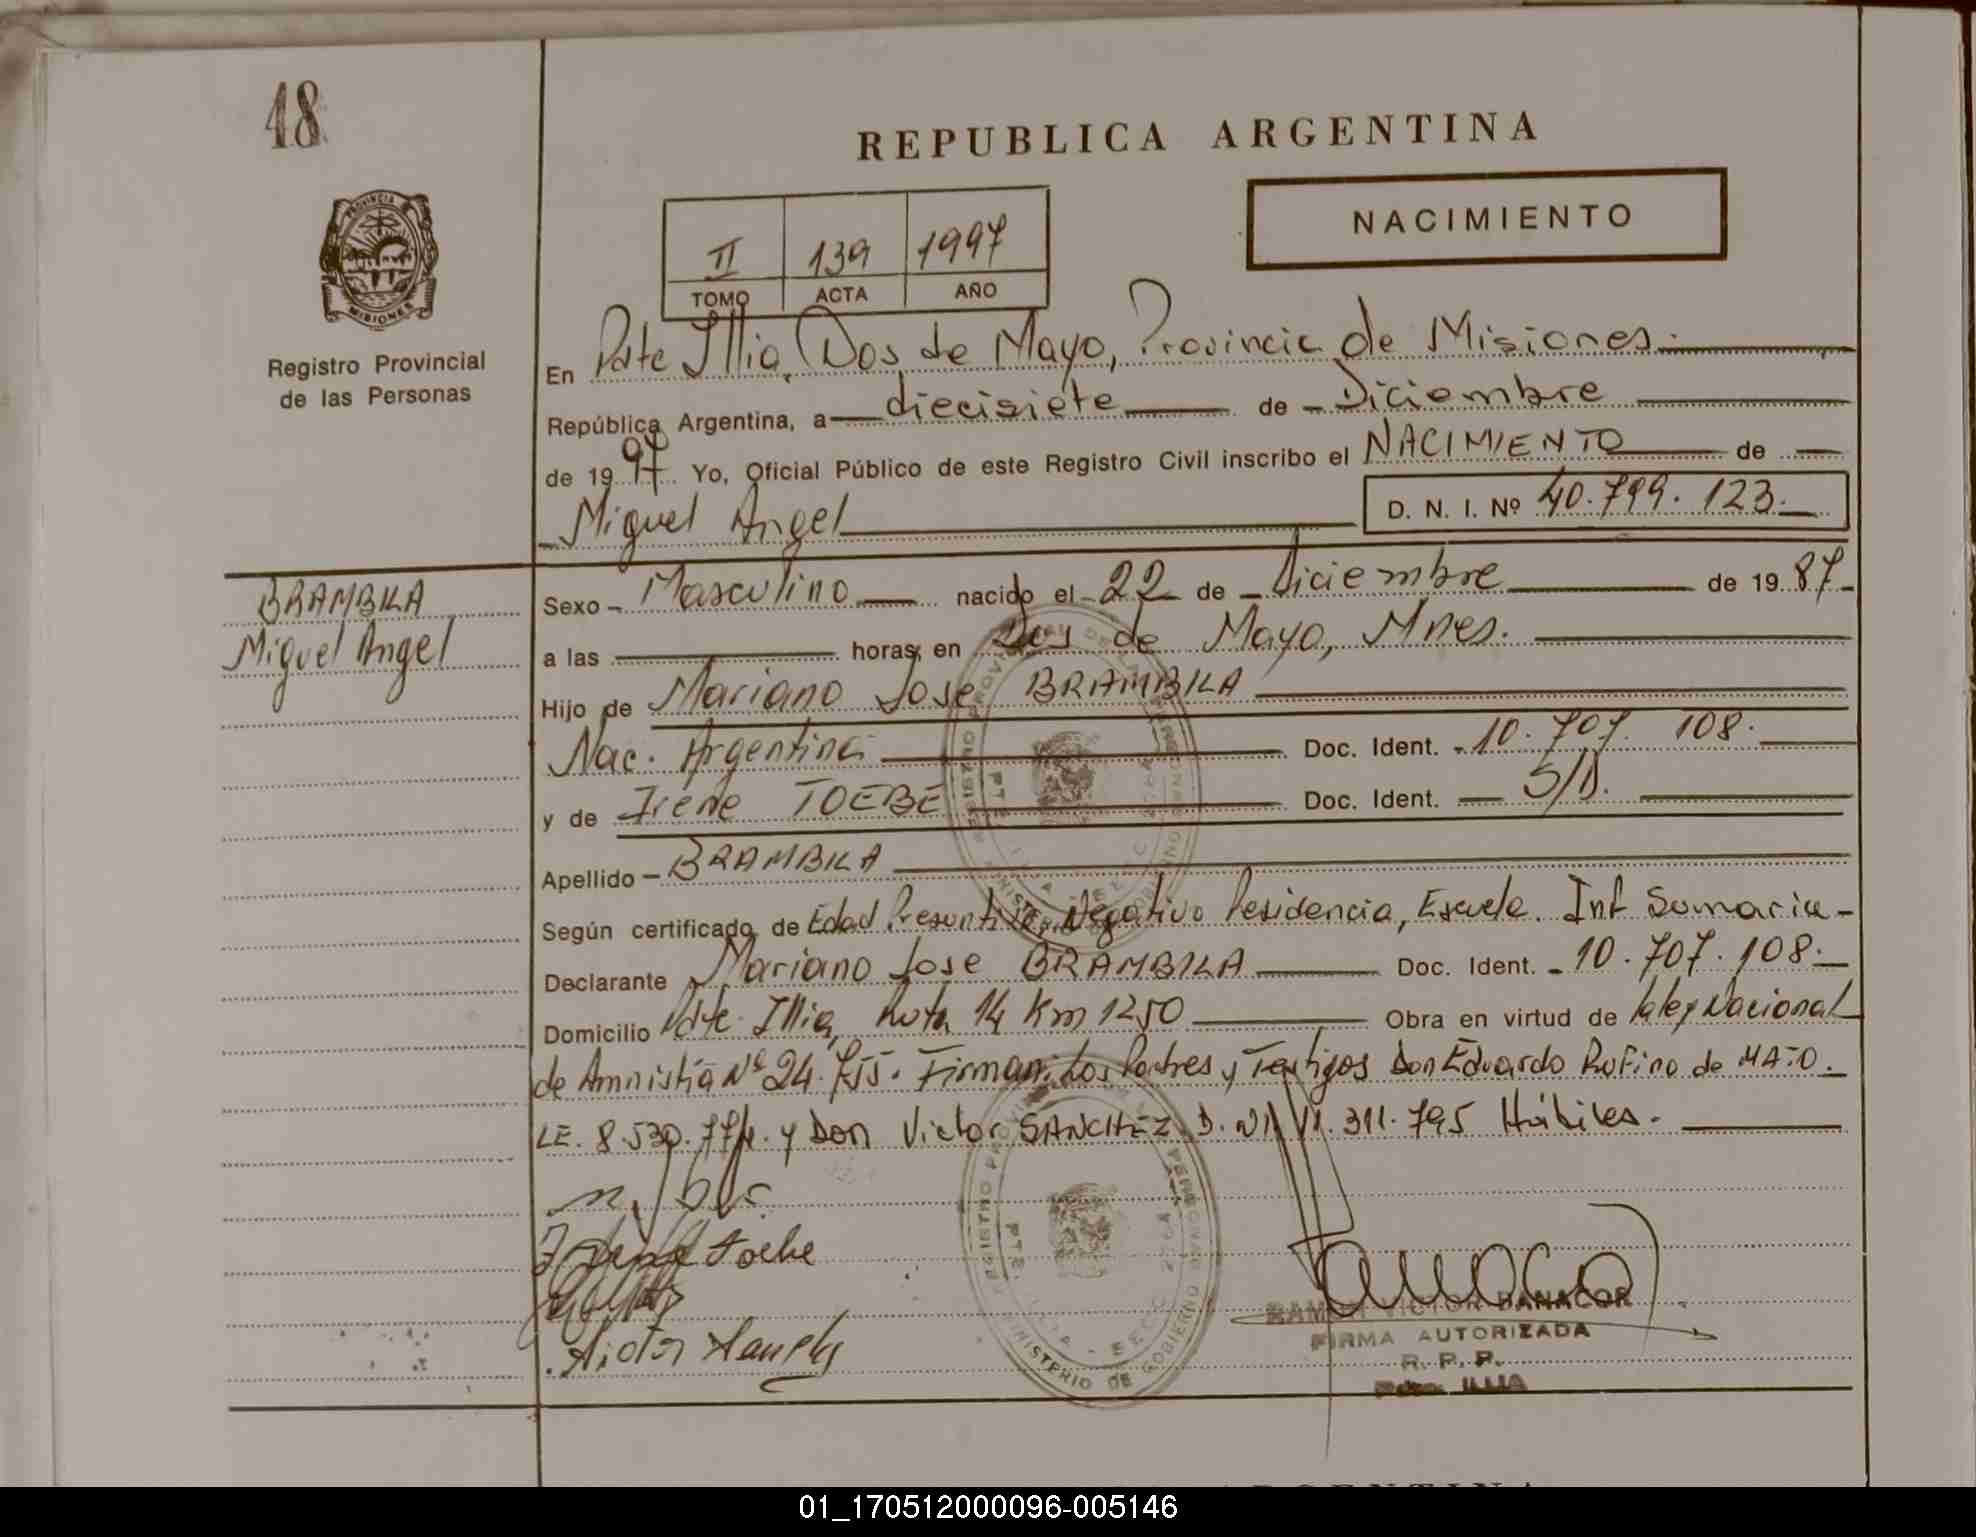 48
REPUBLICA ARGENTINA
NACIMIENTO
II 139 1997
TOMO ACTA AÑO
PROVINCIA
MISIONES
Registro Provincial
de las Personas
En Pdte Illia, Dos de Mayo, Provincia de Misiones.
República Argentina, a diecisiete de Diciembre
de 1997. Yo, Oficial Público de este Registro Civil inscribo el NACIMIENTO de
Miguel Angel D. N. I. Nº 40.799.123.
BRAMBILA
Miguel Angel
Sexo Masculino nacido el 22 de Diciembre de 1987
a las horas, en Dos de Mayo, Mnes.
Hijo de Mariano Jose BRAMBILA
Nac. Argentina Doc. Ident. 10.707.108.
y de Irene TOEBE Doc. Ident. S/D.
Apellido BRAMBILA
Según certificado de Edad Presuntiva, Negativo Residencia, Escuela. Inf Sumaria
Declarante Mariano Jose BRAMBILA Doc. Ident. 10.707.108.
Domicilio Pdte. Illia, Ruta 14 Km 1250 Obra en virtud de la ley Nacional
de Amnistía Nº 24.755. Firman: Los Padres y Testigos Don Eduardo Rufino de MATO.
LE. 8.530. y Don Victor SANCHEZ D.NI 311.795 Hábiles.
Toebe
RAMON VICTOR DANACOR
FIRMA AUTORIZADA
R. P. P.
Pdte. ILLIA
REGISTRO PROVINCIAL DE LAS PERSONAS
MINISTERIO DE GOBIERNO
01_170512000096-005146